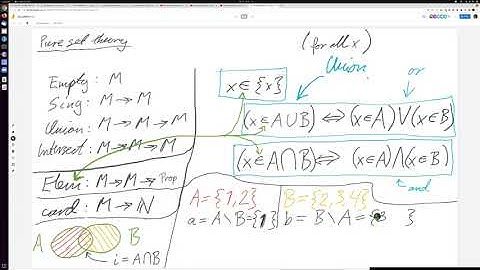 Pure set theory
Empty : M
Sing : M → M
Union : M → M → M
Intersect : M → M → M
Elem : M → M → Prop
card : M → ℕ
A B
i = A∩B
(for all x)
x ∈ {x}
Union
or
(x ∈ A∪B) ⇔ (x∈A) ∨ (x∈B)
(x ∈ A∩B) ⇔ (x∈A) ∧ (x∈B)
and
A = {1,2} B = {2,3,4}
a = A \ B = {1} b = B \ A = {3 }